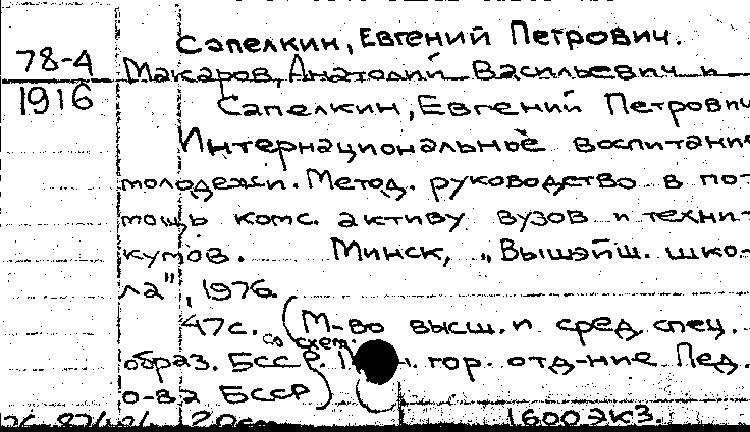 Сапелкин, Евгений Петрович.
78-4 Макаров, Анатолий Васильевич и
1916 Сапелкин, Евгений Петрович
Интернациональное воспитание
молодежи. Метод. руководство в по-
мощь комс. активу вузов и техни-
кумов. Минск, „Вышэйш. шко-
ла", 1976.
47с. (М-во высш. и сред. спец.
со схем.
образ. БССР. гор. отд-ние Пед.
о-ва БССР)
20см 1600 экз.